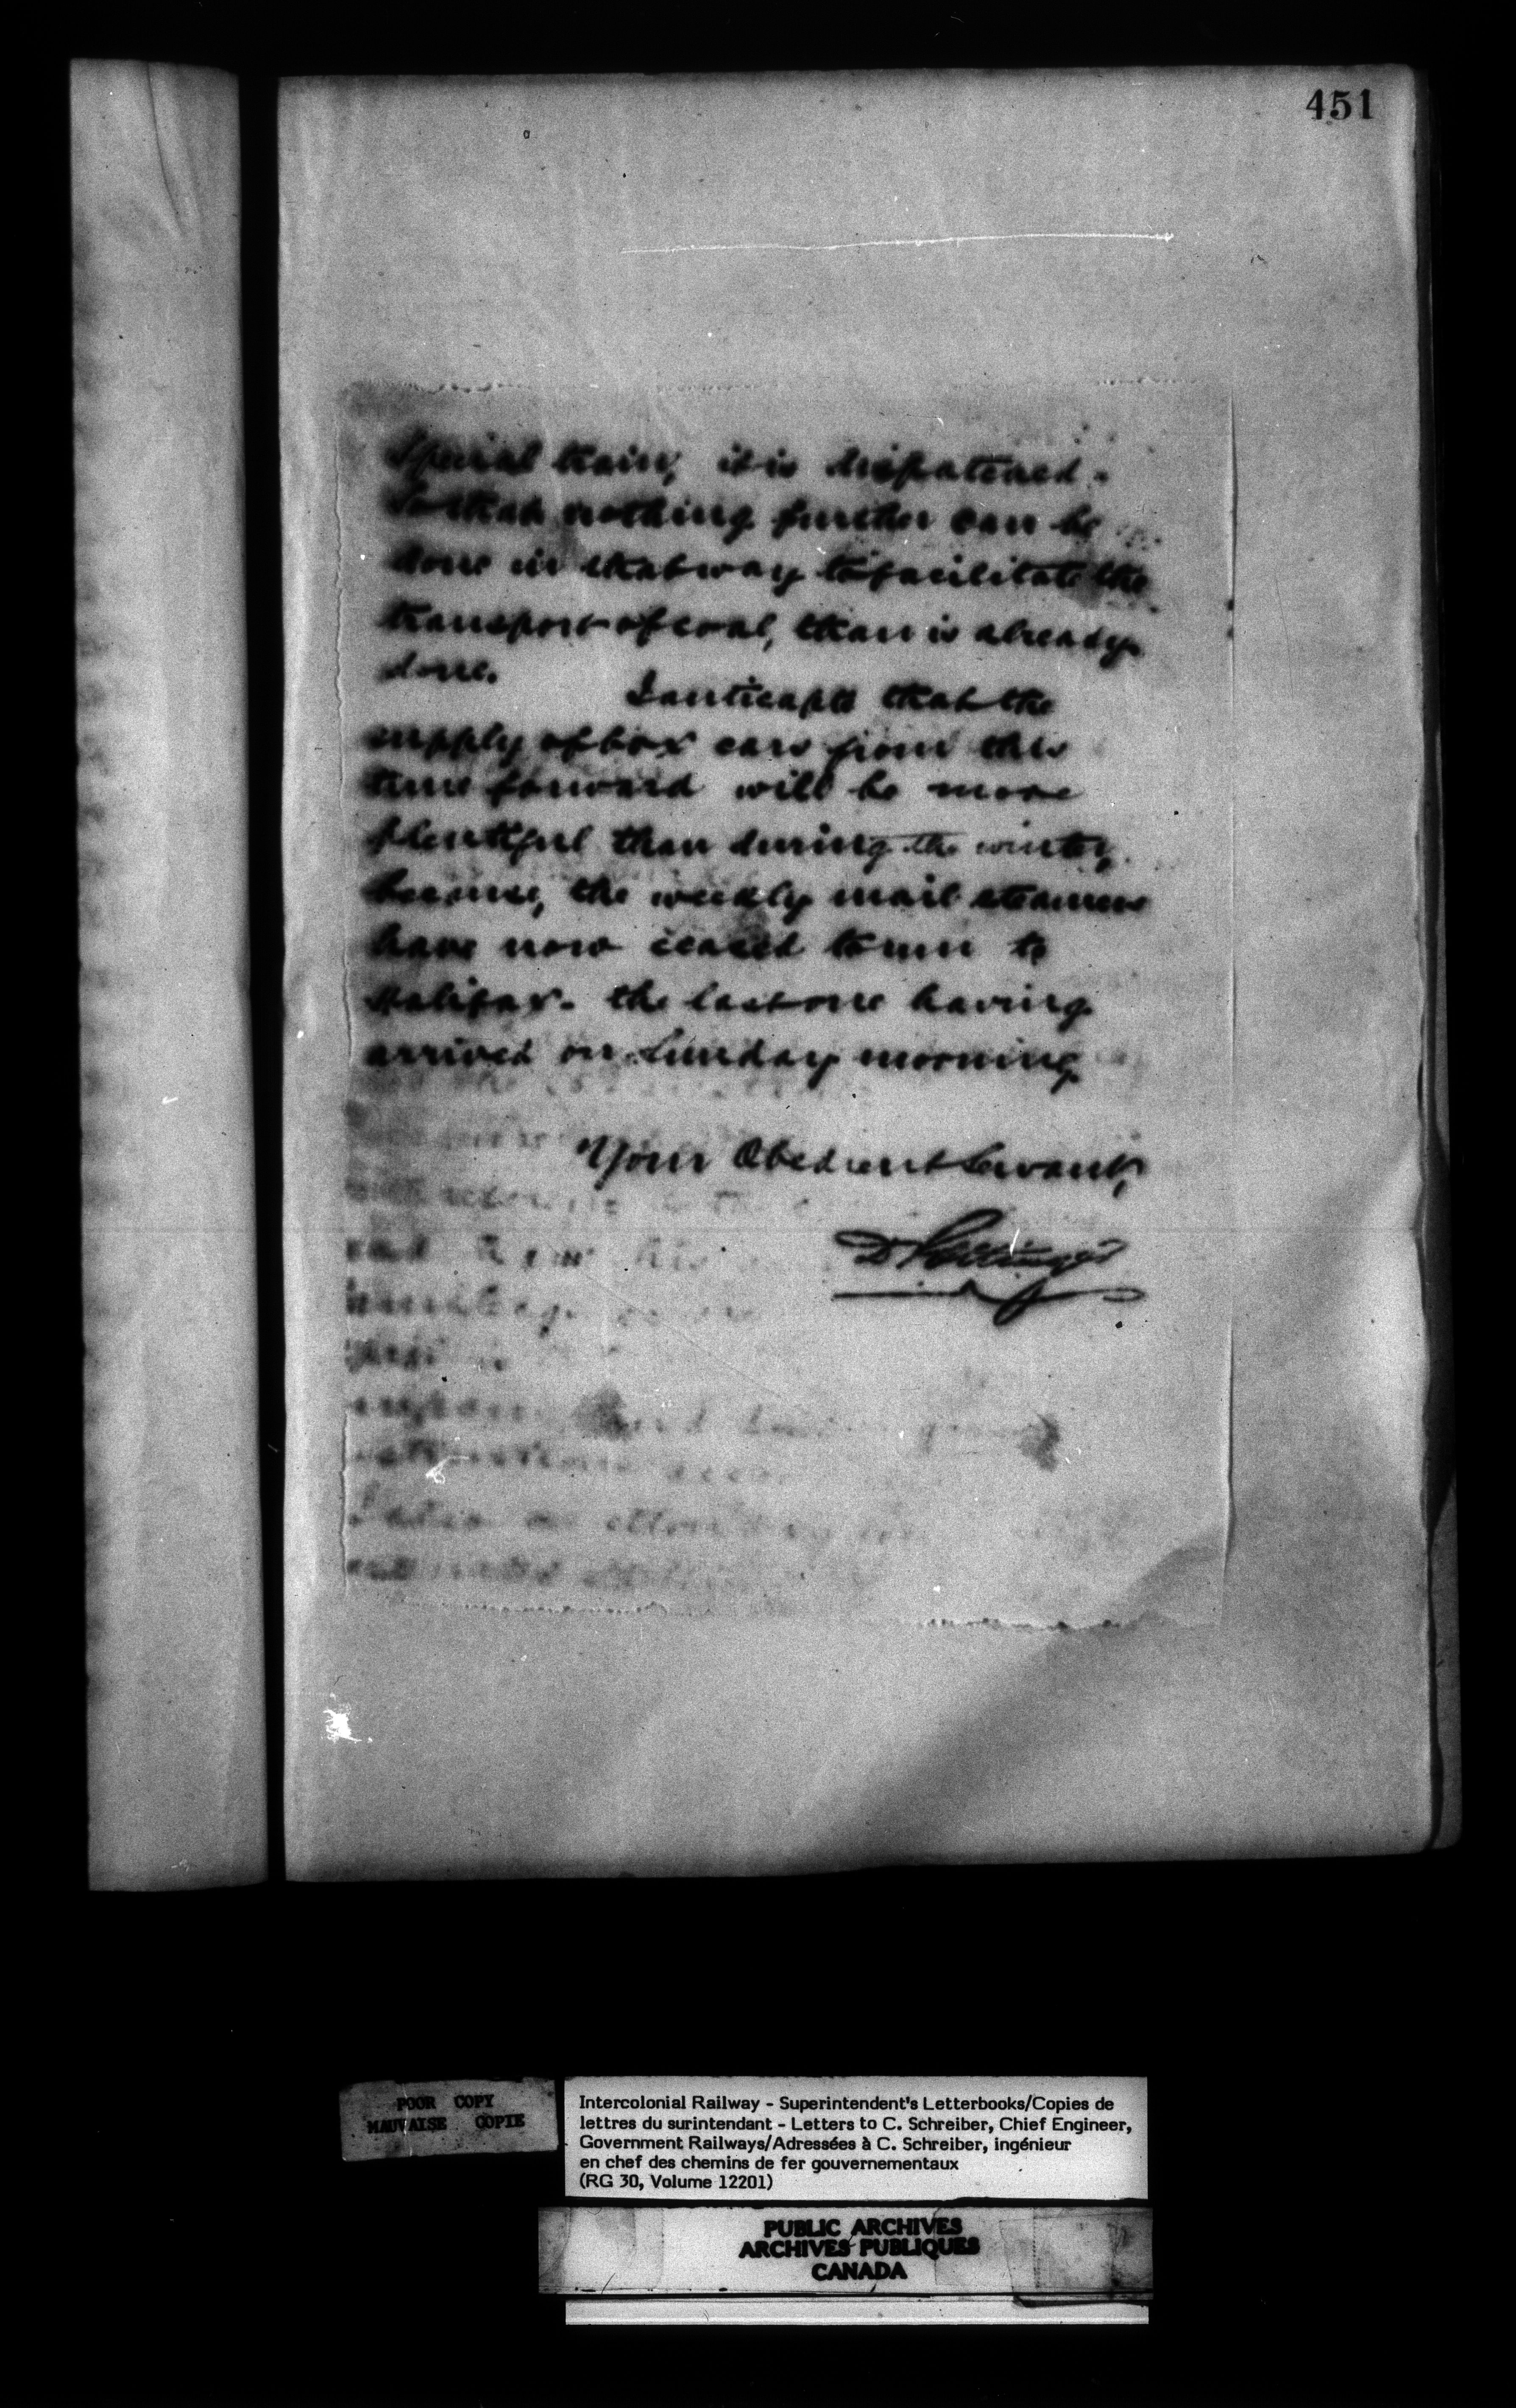 451
Special train, it is dispatched.
So that nothing further can be
done in that way to facilitate the
transport of coal, than is already
done.
I anticapte that the
supply of box cars from this
time forward will be more
plentiful than during the winter,
because, the weekly mail steamers
have now ceased to run to
Halifax - the last one having
arrived on Sunday morning
Your Obedient Servant,
D Pottinger
POOR COPY
MAUVAISE COPIE
Intercolonial Railway - Superintendent's Letterbooks/Copies de
lettres du surintendant - Letters to C. Schreiber, Chief Engineer,
Government Railways/Adressées à C. Schreiber, ingénieur
en chef des chemins de fer gouvernementaux
(RG 30, Volume 12201)
PUBLIC ARCHIVES
ARCHIVES PUBLIQUES
CANADA